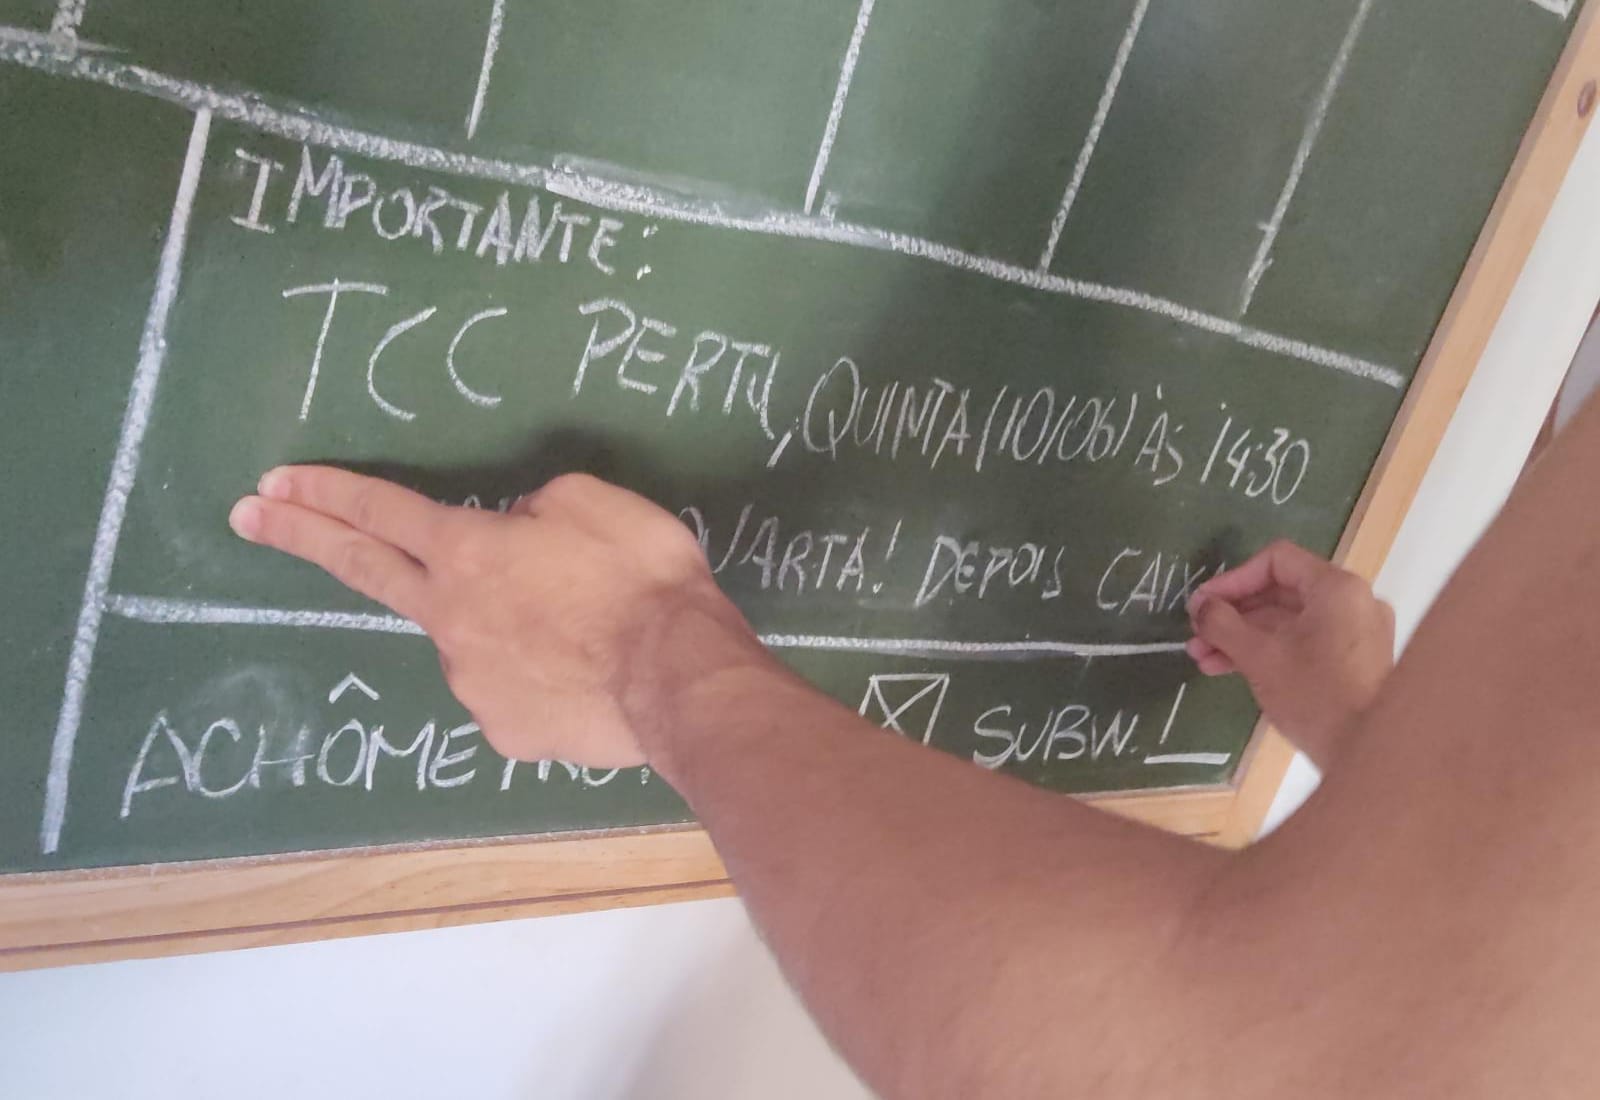 IMPORTANTE:
TCC PERTU, QUINTA (10/06) ÀS 14:30
QUARTA! DEPOIS CAIXA
ACHÔMETRO! SUBW. !